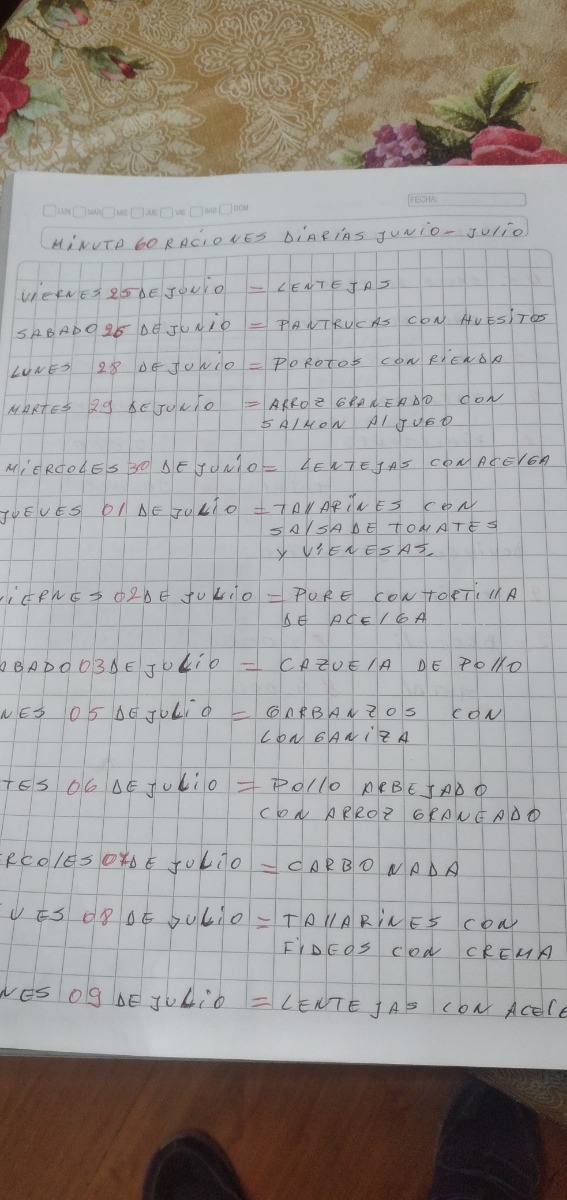 LUN MAR MIE JUE VIE SAB DOM
FECHA:
MINUTA 60 RACIONES DIARIAS JUNIO - JULIO
VIERNES 25 DE JUNIO = LENTEJAS
SABADO 26 DE JUNIO = PANTRUCAS CON HUESITOS
LUNES 28 DE JUNIO = POROTOS CON RIENDA
MARTES 29 DE JUNIO = ARROZ GRANEADO CON
SALMON AL JUGO
MIERCOLES 30 DE JUNIO = LENTEJAS CON ACELGA
JUEVES 01 DE JULIO = TALLARINES CON
SALSA DE TOMATES
Y VIENESAS.
IERNES 02 DE JULIO = PURE CON TORTILLA
DE ACELGA
ABADO 03 DE JULIO = CAZUELA DE POLLO
NES 05 DE JULIO = GARBANZOS CON
LONGANIZA
TES 06 DE JULIO = POLLO ARBEJADO
CON ARROZ GRANEADO
ERCOLES 07 DE JULIO = CARBONADA
VES 08 DE JULIO = TALLARINES CON
FIDEOS CON CREMA
NES 09 DE JULIO = LENTEJAS CON ACELG